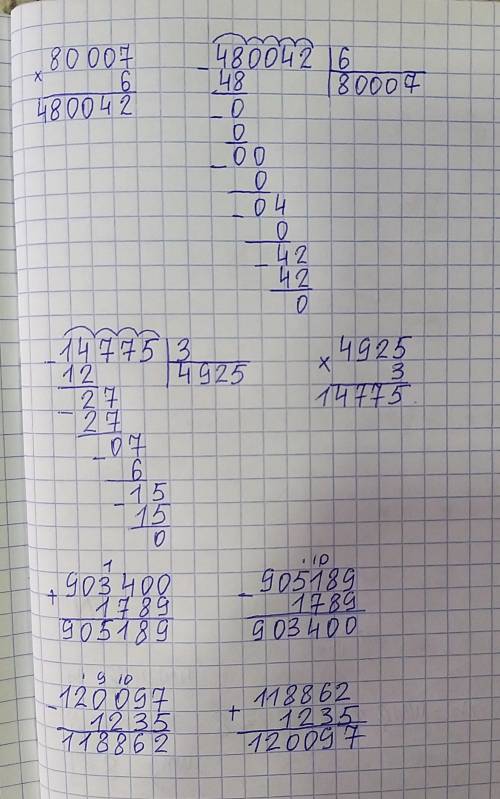 80007
× 6
480042
- 480042 | 6
48 | 80007
- 0
0
- 00
0
- 04
0
- 42
42
0
- 14775 | 3
12 | 4925
- 27
27
- 07
6
- 15
15
0
× 4925
3
14775
1
+ 903400
1789
905189
· 10
- 905189
1789
903400
· 9 10
- 120097
1235
118862
+ 118862
1235
120097